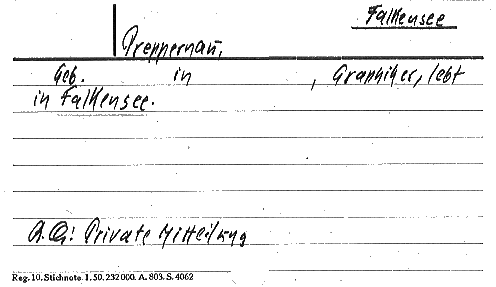 Falkensee
Preppernau,
Geb. in , Graphiker, lebt
in Falkensee.
A.Qu: Private Mitteilung
Reg. 10. Stichnote. 1. 50. 232000. A. 803. S. 4062